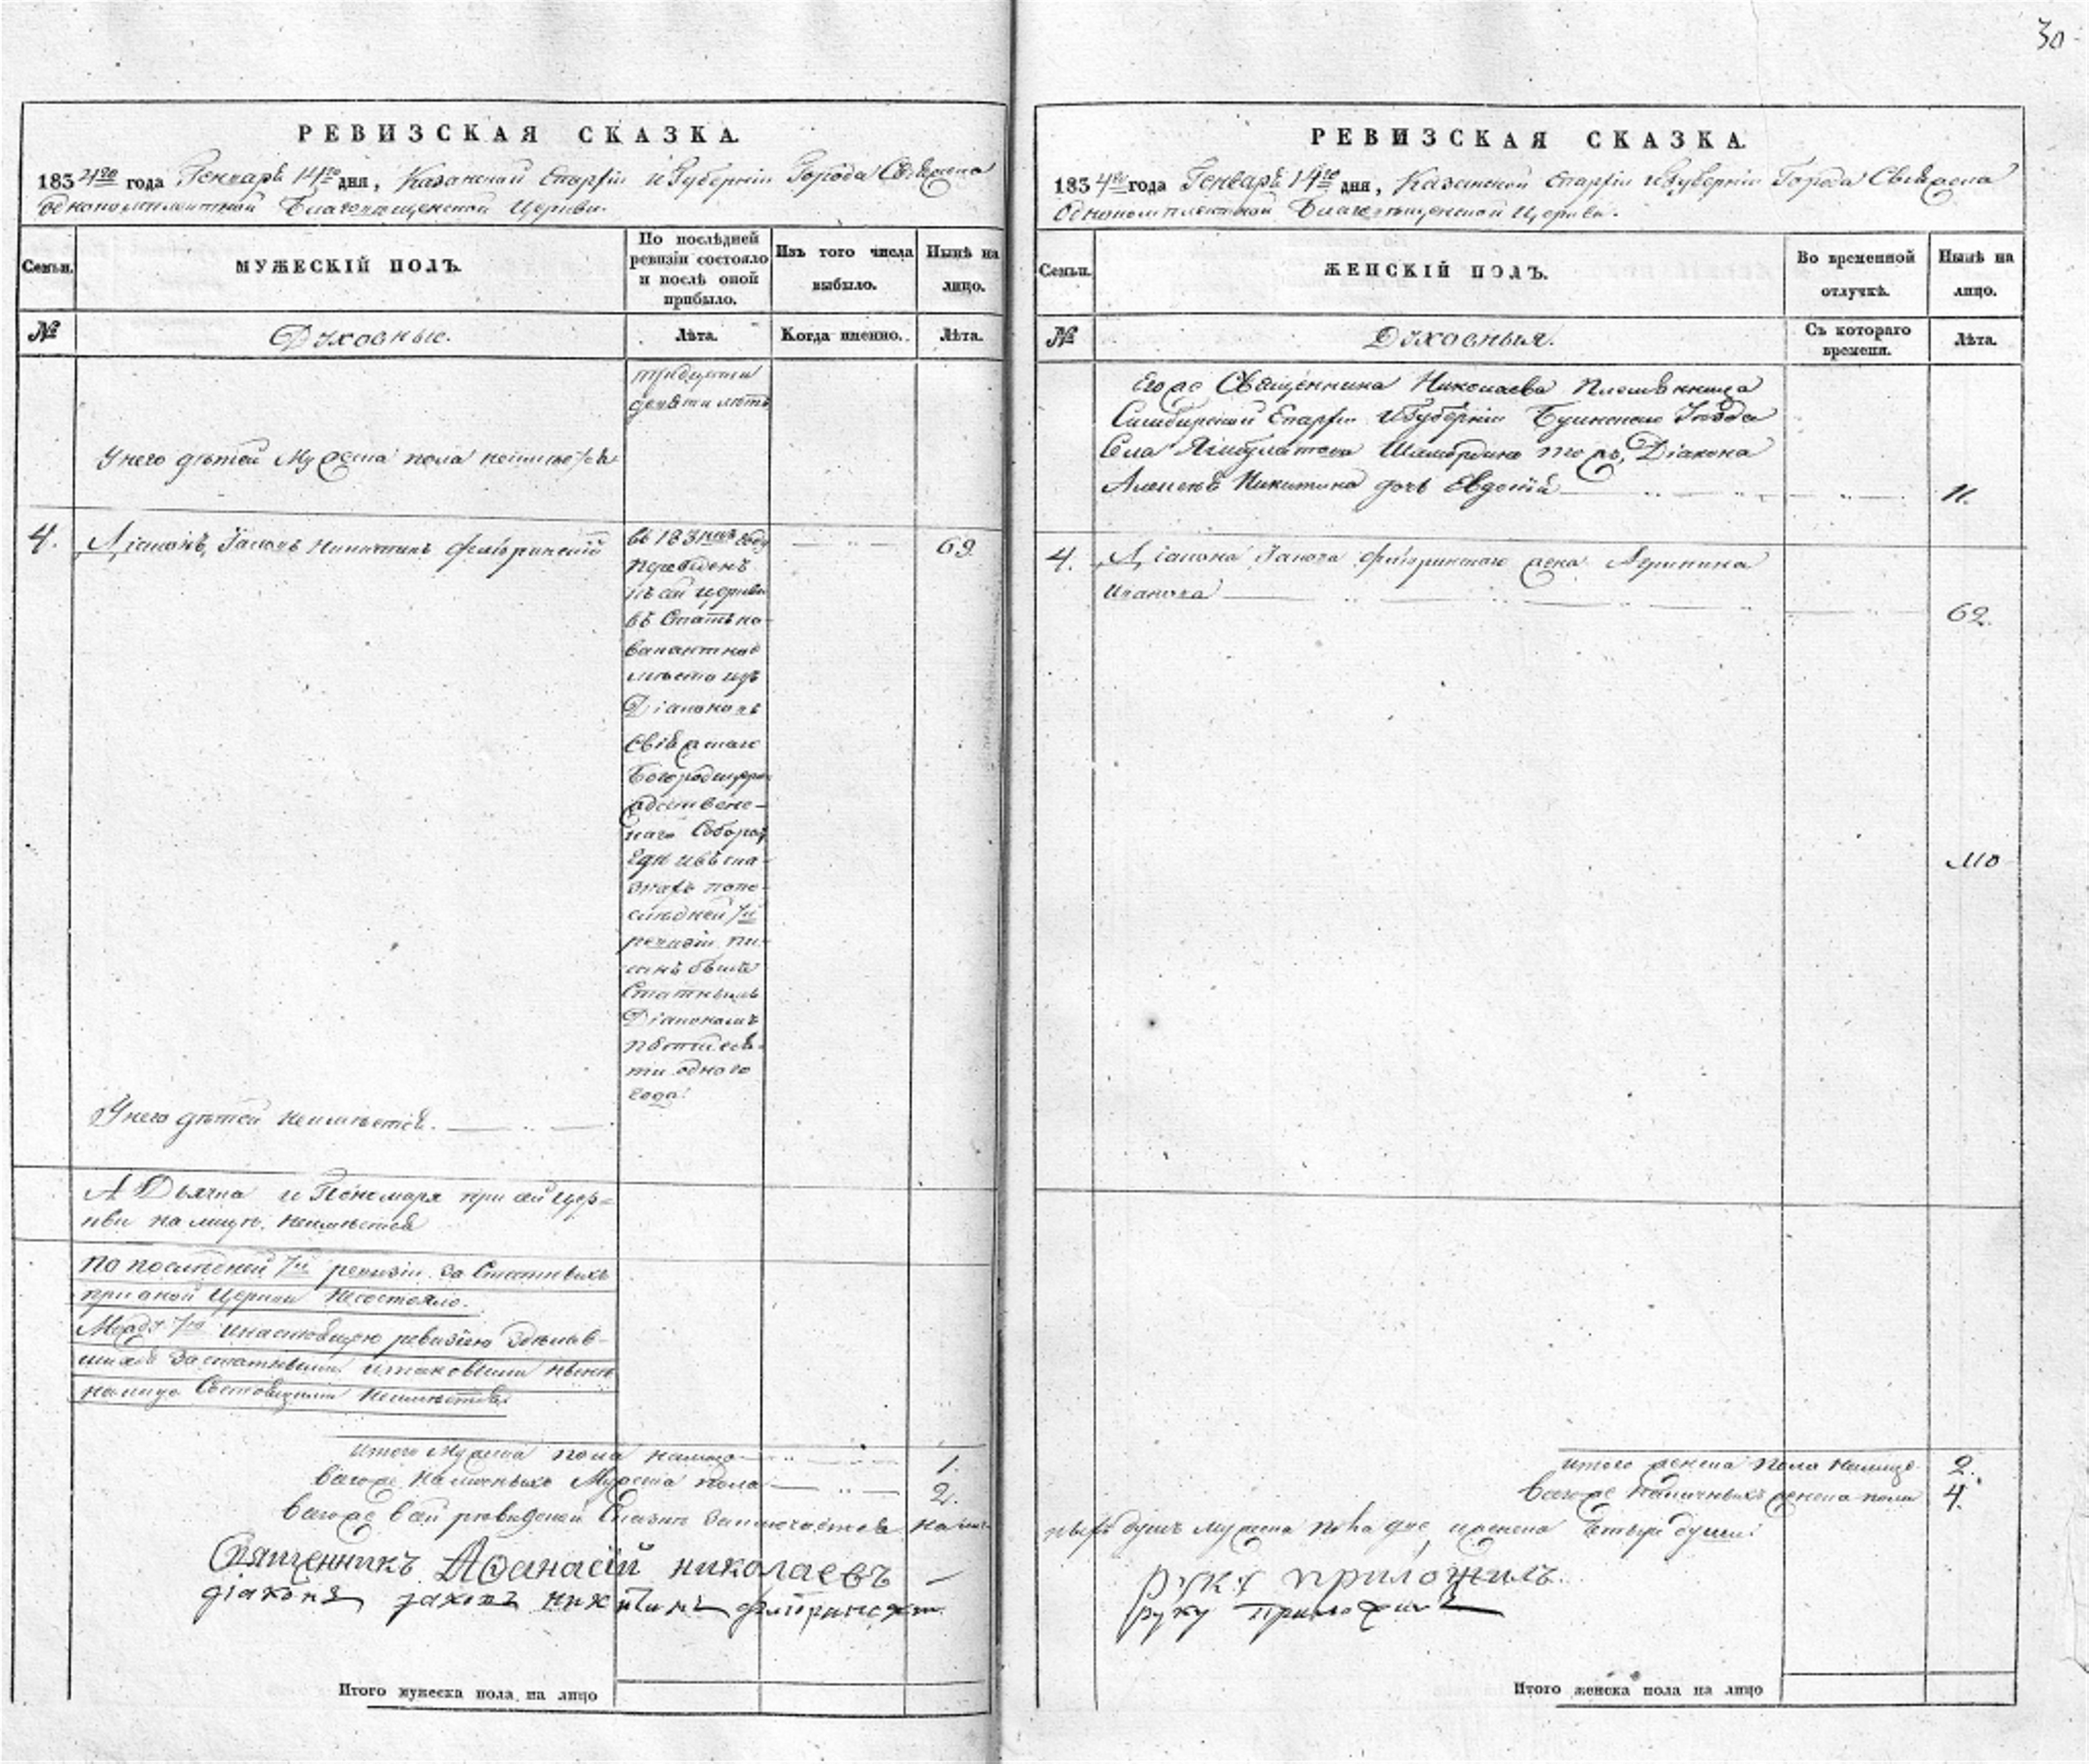 30
РЕВИЗСКАЯ СКАЗКА.
1834го года Генваря 14го дня, Казанской Епархіи и Губерніи Города Свіяжска
однокомплектной Благовѣщенской Церкви.
Семьи. МУЖЕСКІЙ ПОЛЪ. По послѣдней ревизіи состояло и послѣ оной прибыло. Изъ того числа выбыло. Нынѣ на лицо.
№ Духовные. Лѣта. Когда именно. Лѣта.
тридцати
девяти лѣтъ
У него дѣтей Мужеска пола неимѣется
4. Діаконъ, Іаковъ Никитинъ Флоринскій 69
въ 183 году
переведенъ
къ сей церкви
въ Статъ на
вакантное
мѣсто изъ
Діаконовъ
Свіяжскаго
Богородицерож-
дественс-
каго Собора,
гдѣ и въ ска-
зкахъ по по-
слѣдней 7й
ревизіи пи-
санъ былъ
Статнымъ
Діакономъ
пятидеся-
ти одного
года.
У него дѣтей неимѣется.
А Дьячка и Пономаря при сей цер-
кви на лицо неимѣется
По послѣдней 7й ревизіи за Статныхъ
при оной Церкви несостояло.
Между 7ю и настоящею ревизіею здѣлав-
шихся Застатными и таковыми нынѣ
на лицо Состоящими Неимѣется.
Итого Мужеска пола на лицо 1.
Всего же наличныхъ Мужеска пола 2.
Всего же в сей ревизской Сказкѣ Заключается налич-
Священникъ Афанасій николаевъ
діаконъ іаковъ никитинъ флоринскій
Итого мужеска пола на лицо
РЕВИЗСКАЯ СКАЗКА.
1834го года Генваря 14го дня, Казанской Епархіи и Губерніи Города Свіяжска
Однокомплектной Благовѣщенской Церкви.
Семьи. ЖЕНСКІЙ ПОЛЪ. Во временной отлучкѣ. Нынѣ на лицо.
№ Духовныя. Съ котораго времени. Лѣта.
Его же Священника Николаева Племянница
Симбирской Епархіи и Губерніи Буинскаго Уѣзда
Села Шамордино тожъ, Діакона
Алексѣя Никитина дочь Евдокія 11.
4. Діакона Іакова Флоринскаго жена
Иванова 62.
Итого женска пола на лицо 2.
Всего же наличныхъ женска пола 4.
ныхъ душъ мужеска пола две, и женска четыре души:
руку приложилъ.
руку приложилъ
Итого женска пола на лицо